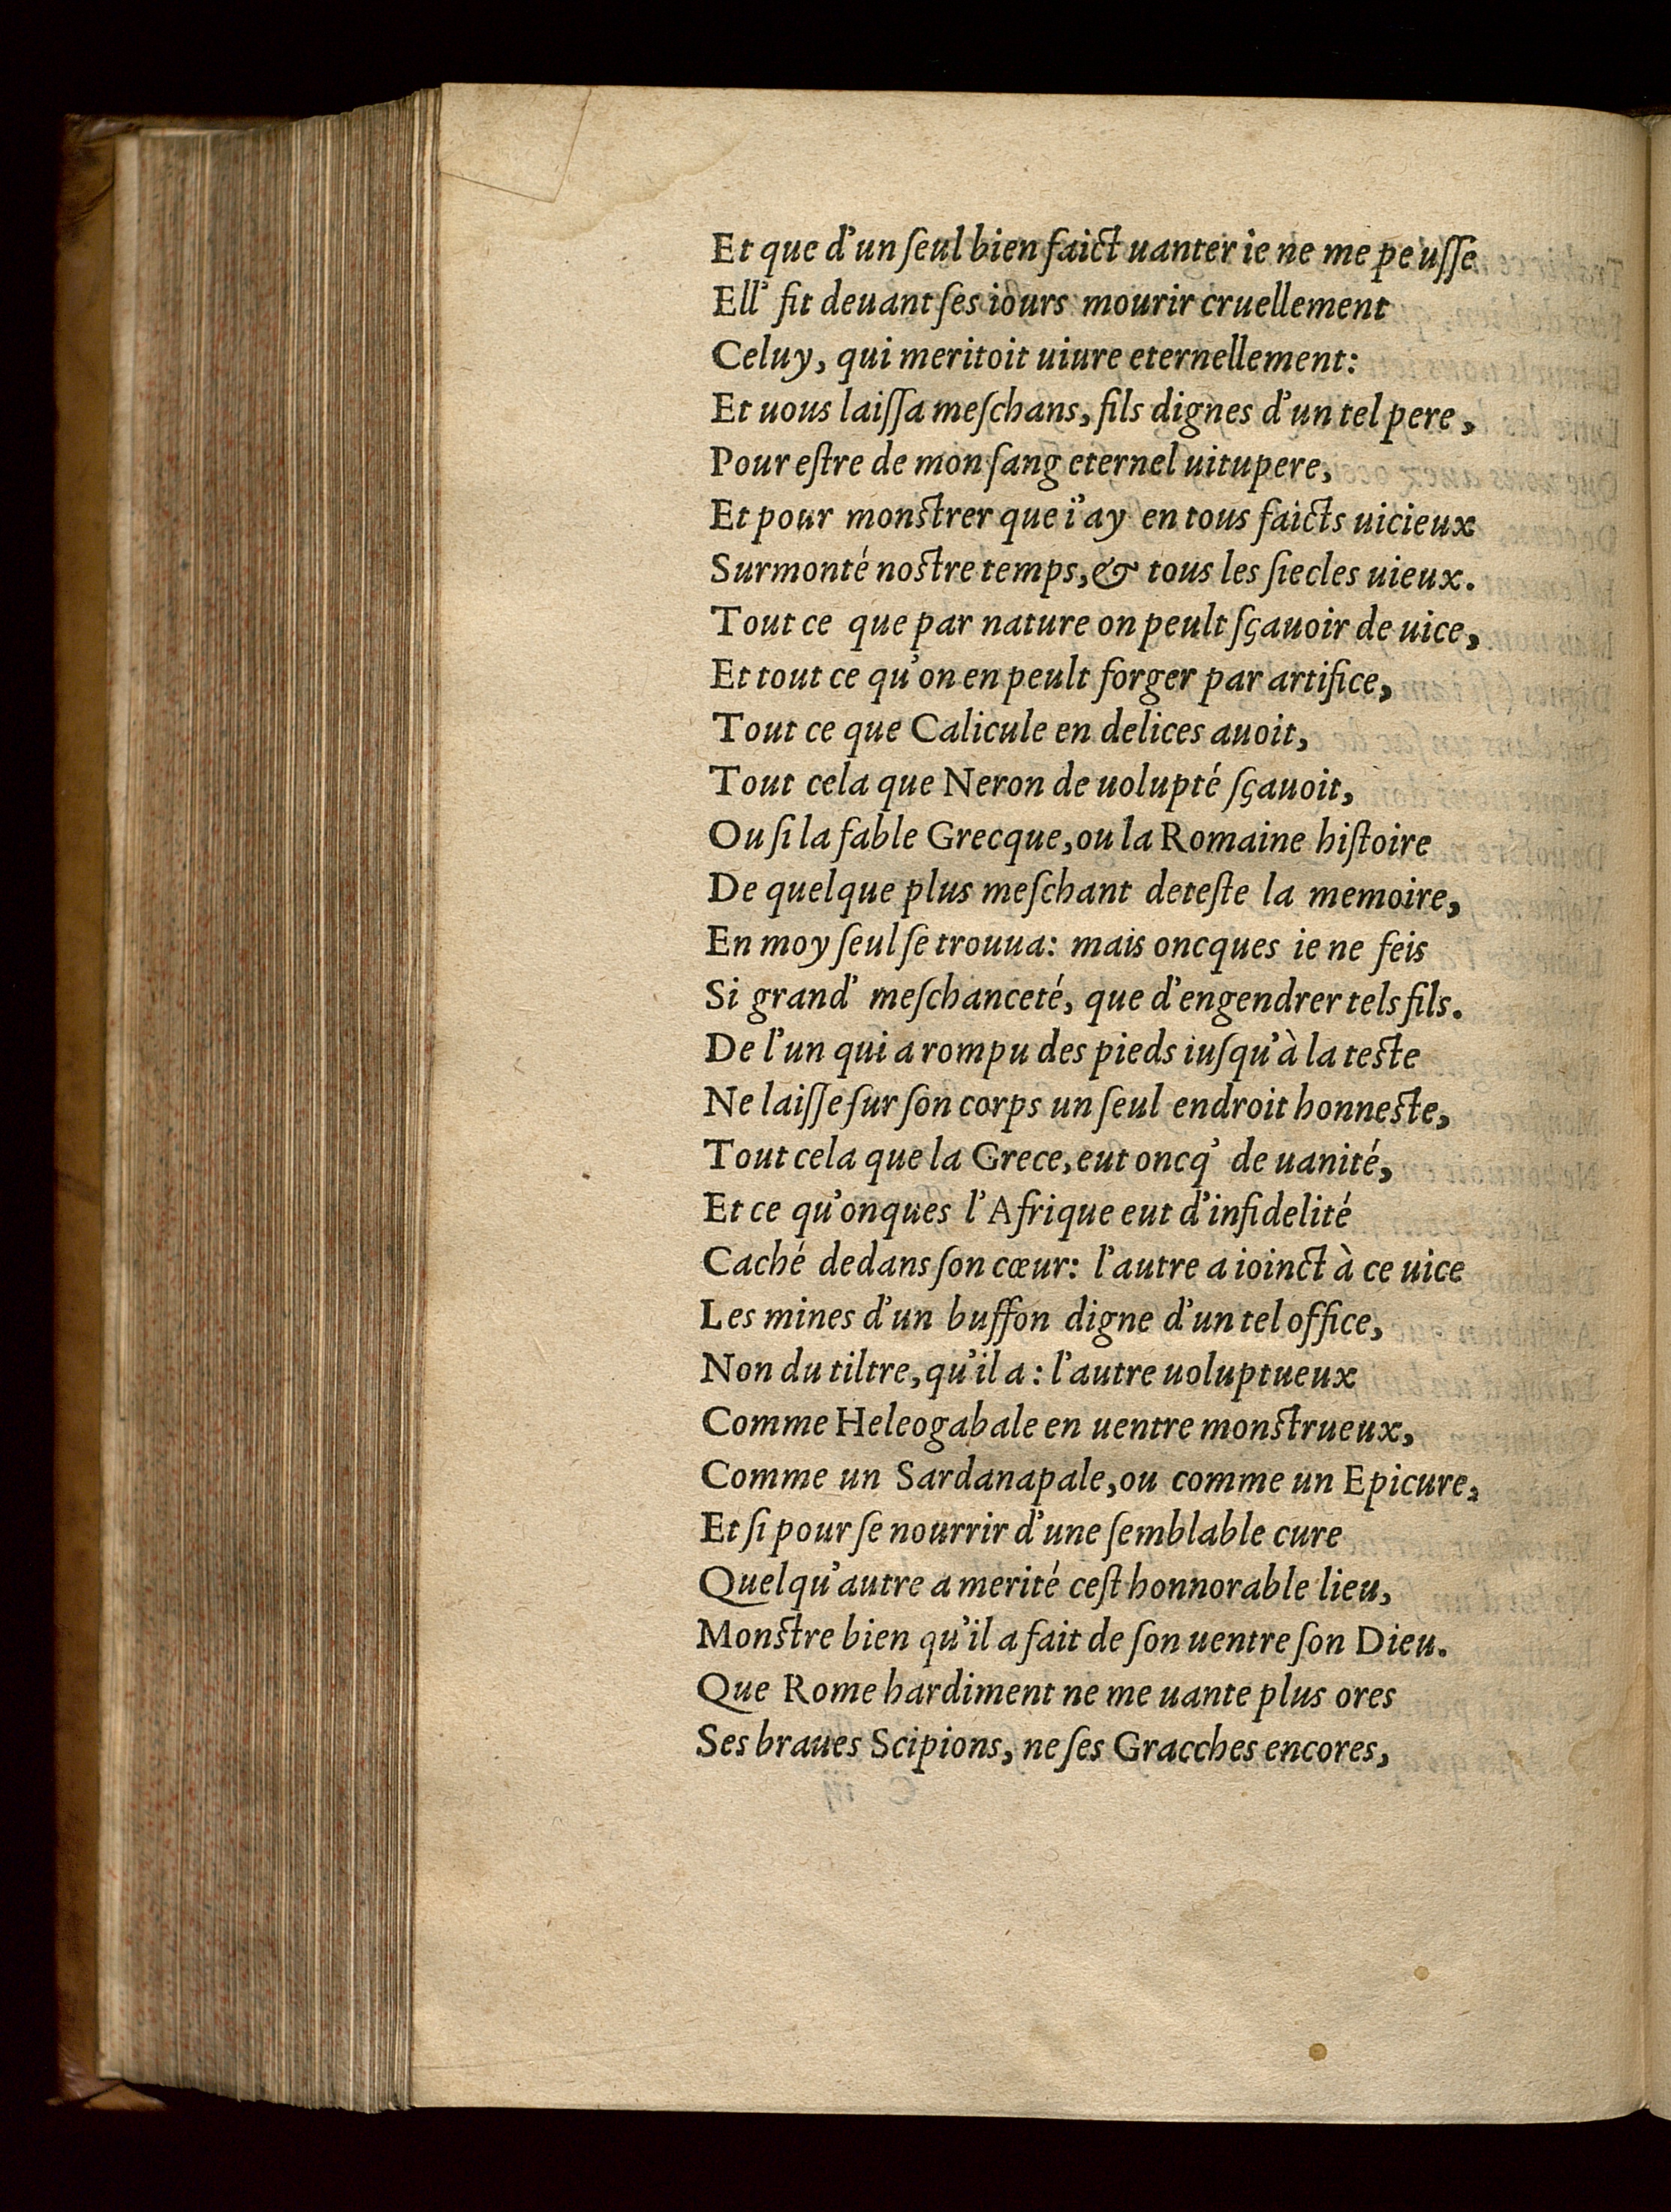 Et que d'un ſeul bien faict uanter ie ne me peuſſe
Ell' fit deuant ſes iours mourir cruellement
Celuy, qui meritoit uiure eternellement:
Et uous laiſſa meſchans, fils dignes d'un tel pere,
Pour eſtre de mon ſang eternel uitupere,
Et pour monſtrer que i'ay en tous faicts uicieux
Surmonté noſtre temps, & tous les ſiecles uieux.
Tout ce que par nature on peult ſçauoir de uice,
Et tout ce qu'on en peult forger par artifice,
Tout ce que Calicule en delices auoit,
Tout cela que Neron de uolupté ſçauoit,
Ou ſi la fable Grecque, ou la Romaine hiſtoire
De quelque plus meſchant deteſte la memoire,
En moy ſeul ſe trouua: mais oncques ie ne feis
Si grand' meſchanceté, que d'engendrer tels fils.
De l'un qui a rompu des pieds iuſqu'à la teſte
Ne laiſſe ſur ſon corps un ſeul endroit honneſte,
Tout cela que la Grece, eut oncq' de uanité,
Et ce qu'onques l'Afrique eut d'infidelité
Caché dedans ſon cœur: l'autre a ioinct à ce uice
Les mines d'un buffon digne d'un tel office,
Non du tiltre, qu'il a: l'autre uoluptueux
Comme Heleogabale en uentre monſtrueux,
Comme un Sardanapale, ou comme un Epicure,
Et ſi pour ſe nourrir d'une ſemblable cure
Quelqu'autre a merité ceſt honnorable lieu,
Monſtre bien qu'il a fait de ſon uentre ſon Dieu.
Que Rome hardiment ne me uante plus ores
Ses braues Scipions, ne ſes Gracches encores,